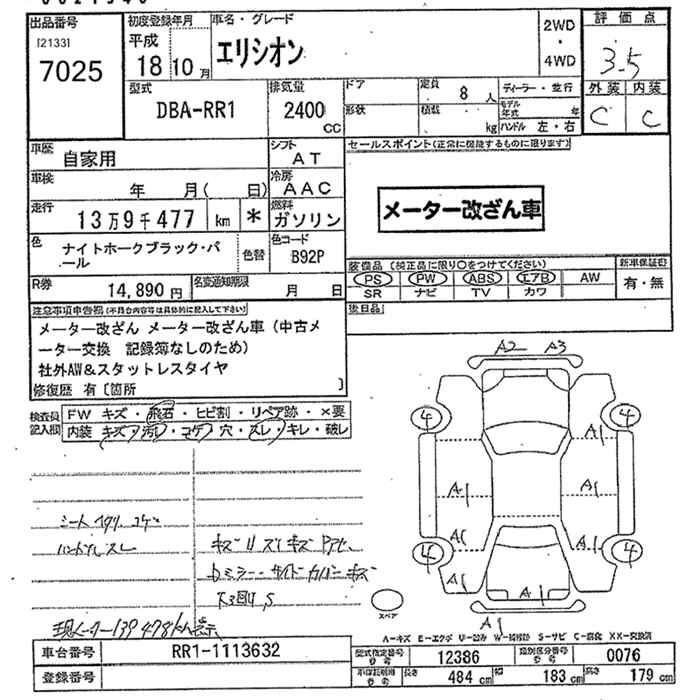 出品番号 初度登録年月 車名・グレード 2WD・4WD 評価点
[2133]
7025
平成
18 10月
エリシオン
3.5
外装 内装
C C
型式 排気量 ドア 定員 8人 ディーラー・並行
DBA-RR1 2400 cc
形状 積載 kg モデル年式 年
ハンドル 左・右
車歴 自家用 シフト AT
セールスポイント(正常に機能するものに限ります)
車検 年 月( 日) 冷房 AAC
メーター改ざん車
走行 13万9千477 km * 燃料 ガソリン
色 ナイトホークブラック・パール 色替 色コード B92P
装備品 (純正品に限り○をつけてください) 新車保証書
PS PW ABS エアB AW 有・無
SR ナビ TV カワ
R券 14,890円 名変通知期限 月 日
後日品
注意事項申告欄(不具合内容等は具体的に記入して下さい)
メーター改ざん メーター改ざん車 (中古メ
ーター交換 記録簿なしのため)
社外AW&スタットレスタイヤ
修復歴 有〔箇所 〕
検査員記入欄
FW キズ・飛石・ヒビ割・リペア跡・×要
内装 キズ・汚れ・コゲ・穴・スレ・キレ・破レ
A2 A3
4 4
A1 A1
A1 A1
4 4
A1 A1 A1
A1
シート コゲ
ハンドルスレ
キズ
ミラー・サイドカバーキズ
スペア
現メーター139478km表示
A-キズ E-エクボ U-凹み W-補修跡 S-サビ C-腐食 XX-交換済
車台番号 RR1-1113632
登録番号
型式指定番号 12386 類別区分番号 0076
長さ 484 cm 幅 183 cm 高さ 179 cm